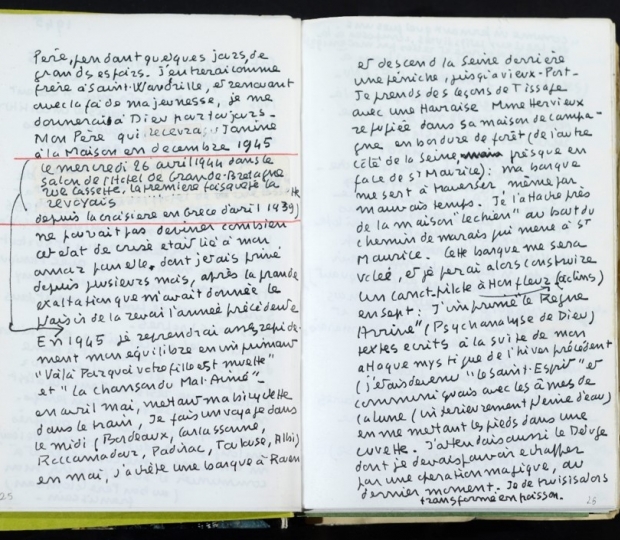 Père, pendant quelques jours, de
grands espoirs. J'entrerai comme
frère à Saint-Wandrille, et renouant
avec la foi de ma jeunesse, je me
donnerai à Dieu pour toujours.
Mon Père qui recevra Janine
à la Maison en decembre 1945
le mercredi 26 avril 1944 dans le
salon de l'Hotel de Grande-Bretagne
rue Cassette, la première fois que je la
revoyais
depuis la croisière en Grèce d'avril 1939)
ne pouvait pas deviner combien
cet état de crise etait lié à mon
amour pour elle, dont j'etais privé
depuis plusieurs mois, après la grande
exaltation que m'avait donnée le
plaisir de la revoir l'année précédente
En 1945 je reprendrai assez rapide-
ment mon équilibre en imprimant
"Voilà Pourquoi votre fille est muette"
et "la chanson du Mal-Aimé".
en avril mai, mettant ma bicyclette
dans le train, Je fais un voyage dans
le midi (Bordeaux, Carcassonne,
Roccamadour, Padirac, Toulouse, Albi)
en mai, j'achète une barque à Rouen
25
et descend la Seine derrière
une péniche, jusqu'a vieux-Port-
Je prends des leçons de Tissage
avec une Havraise Mme Hervieux
refugiée dans sa maison de campa-
gne en bordure de forêt (de l'autre
côté de la Seine, presque en
face de St Maurice): ma barque
me sert à traverser, même par
mauvais temps. Je l'attache près
de la maison "lechien" au bout du
chemin de marais qui mène à St
Maurice. Cette barque me sera
volée, et je ferai alors construire
un canot pilote à Honfleur (à clins)
en sept: J'imprime le Règne
Arrive" (Psychanalyse de Dieu)
textes ecrits à la suite de mon
attaque mystique de l'hiver précédent
(j'étais devenu "le Saint-Esprit" et
communiquais avec les âmes de
la lune (interieurement pleine d'eau)
en me mettant les pieds dans une
cuvette. J'attendais aussi le Déluge
dont je devais pouvoir echapper
par une operation magique, au
dernier moment. Je me
transformé en poisson.
26